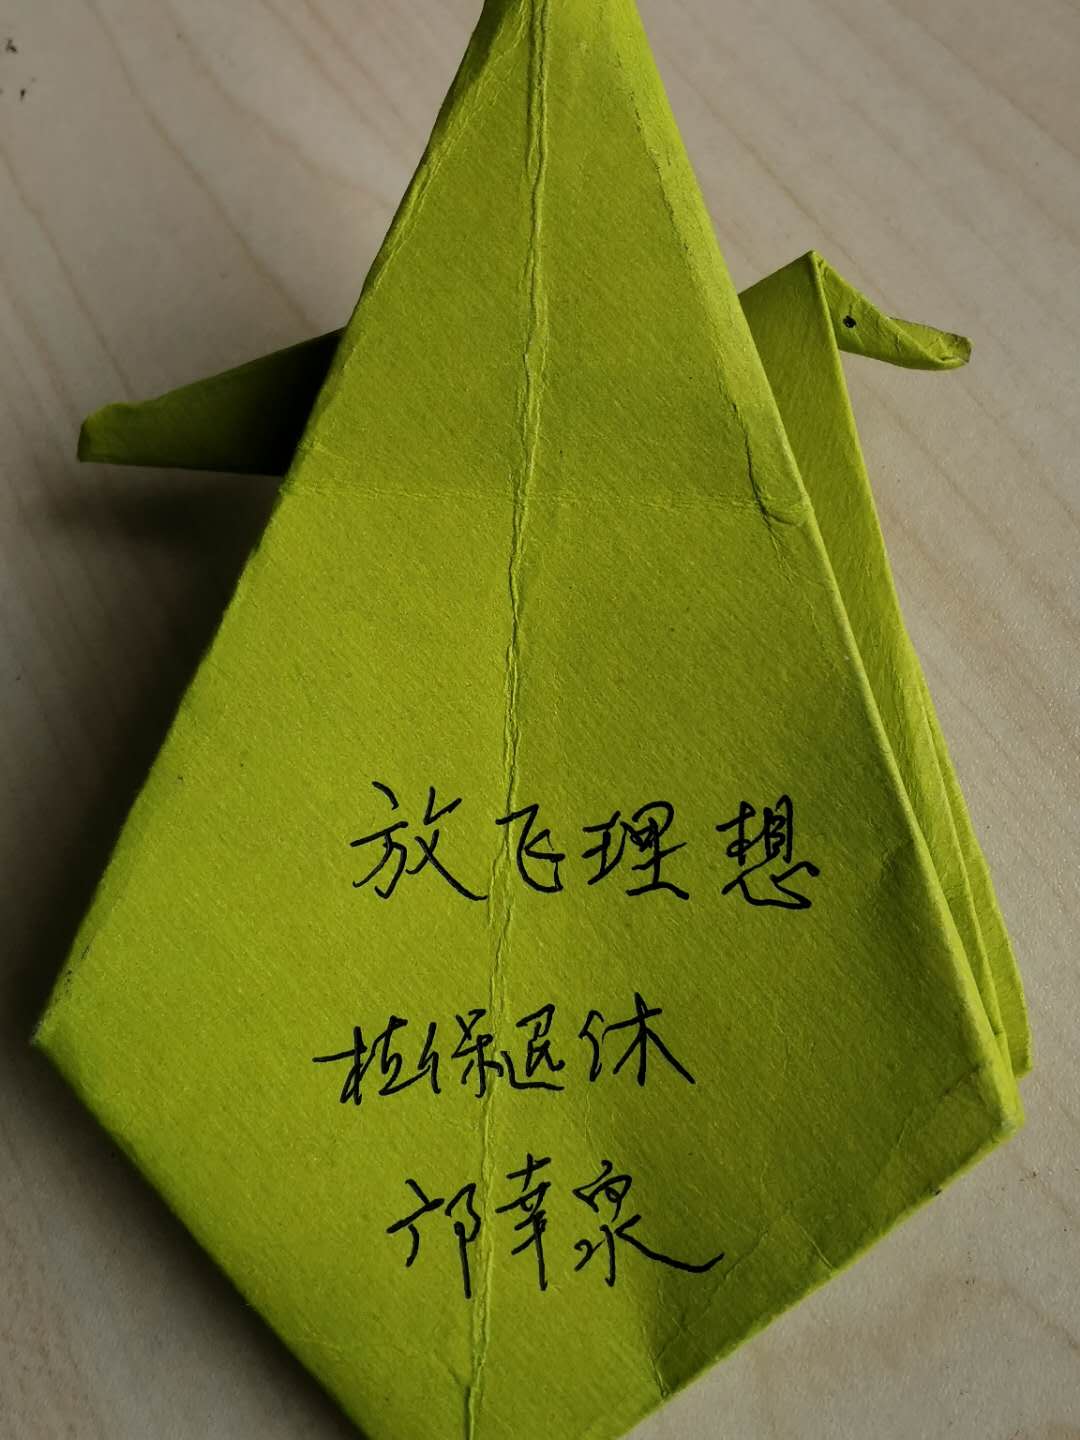 放飞理想
植保退休
邝幸泉